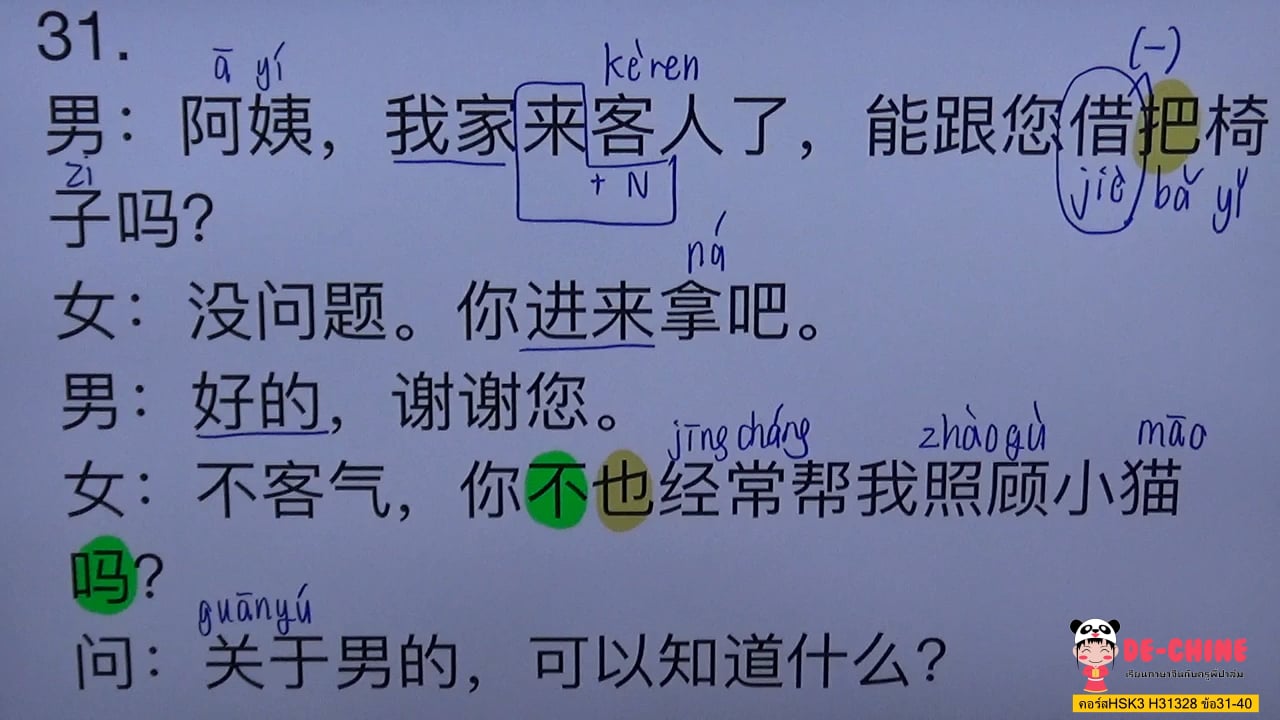 31.
ā yí kèren (一)
男：阿姨，我家来客人了，能跟您借把椅
zi + N jiè bǎ yǐ
子吗？
ná
女：没问题。你进来拿吧。
男：好的，谢谢您。
jīng cháng zhàogù māo
女：不客气，你不也经常帮我照顾小猫
吗？
guānyú
问：关于男的，可以知道什么？
DE-CHINE
เรียนภาษาจีนกับครูพี่ป่าปิ๊ม
คอร์สHSK3 H31328 ข้อ31-40